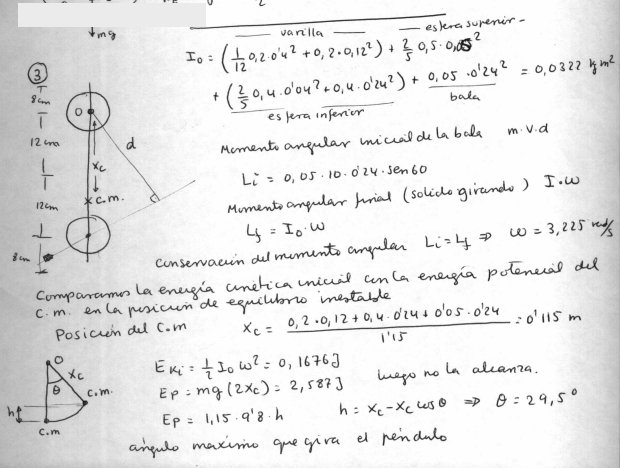 mg
varilla esfera superior
I₀ = (1/12 0,2·0'4² + 0,2·0,12²) + 2/5 0,5·0,05²
+ (2/5 0,4·0'04² + 0,4·0'24²) + 0,05·0'24² = 0,0322 kg m²
esfera inferior bala
3
8cm
12cm
12cm
8cm
O
d
Xc
c.m.
Momento angular inicial de la bala m·v·d
Li = 0,05·10·0'24·sen60
Momento angular final (solido girando) I·ω
Lf = I₀·ω
Conservación del momento angular Li = Lf ⇒ ω = 3,225 rad/s
Comparamos la energía cinética inicial con la energía potencial del
c.m. en la posición de equilibrio inestable
Posición del C.m Xc = 0,2·0,12 + 0,4·0'24 + 0'05·0'24 / 1'15 = 0'115 m
EKi = 1/2 I₀ ω² = 0,1676 J
Ep = mg(2Xc) = 2,587 J luego no la alcanza.
Ep = 1,15·9'8·h h = Xc - Xc cosθ ⇒ θ = 29,5°
O
θ
Xc
c.m.
h
c.m
ángulo maximo que gira el péndulo